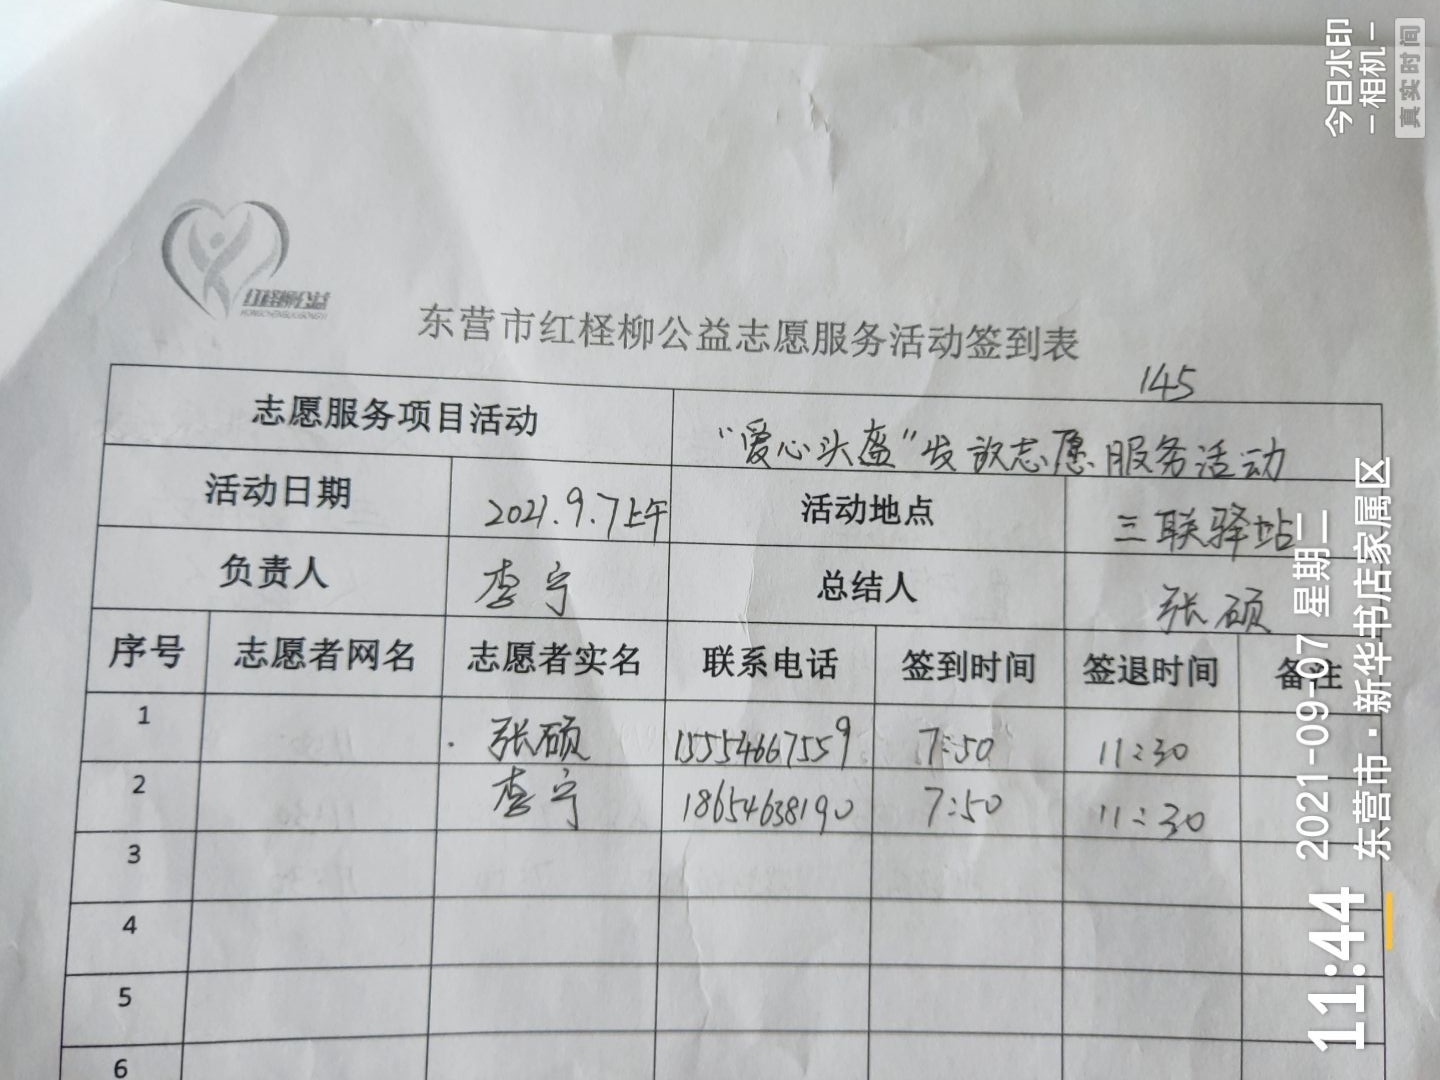 红柽柳公益
HONGCHENGLIUGONGYI
东营市红柽柳公益志愿服务活动签到表
145
志愿服务项目活动 “爱心头盔”发放志愿服务活动
活动日期 2021.9.7上午 活动地点 三联驿站
负责人 李宁 总结人 张硕
序号 志愿者网名 志愿者实名 联系电话 签到时间 签退时间 备注
1 张硕 15554667559 7:50 11:30
2 李宁 18654638190 7:50 11:30
3
4
5
6
今日水印
-相机-
真实时间
11:44
2021-09-07 星期二
东营市·新华书店家属区